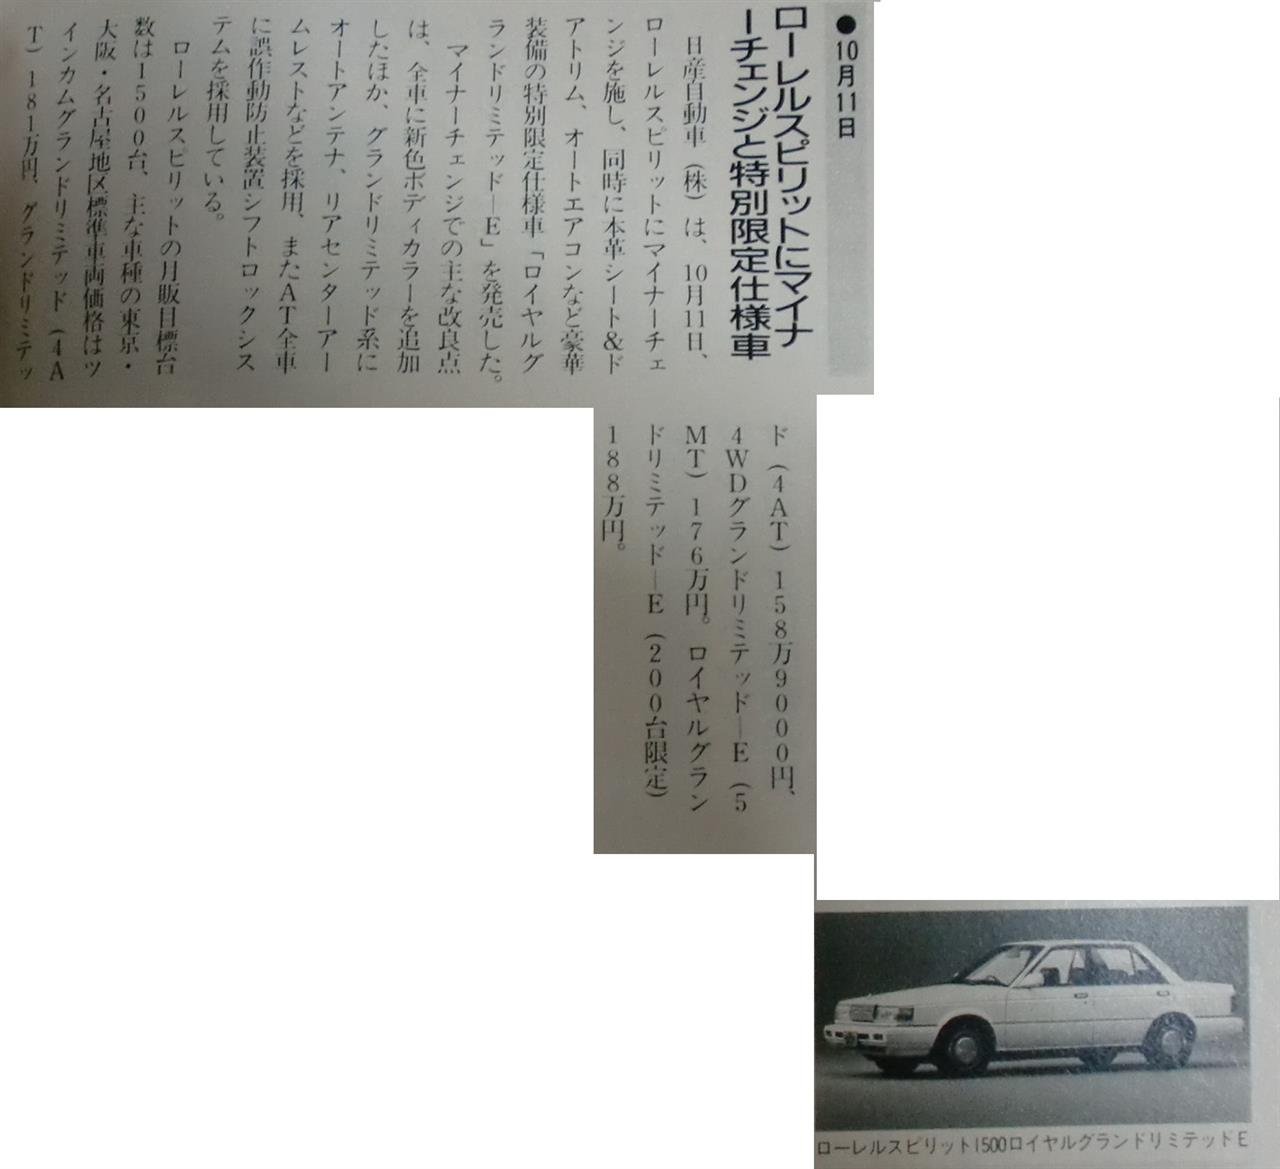 ●10月11日
ローレルスピリットにマイナ
ーチェンジと特別限定仕様車
日産自動車（株）は、10月11日、
ローレルスピリットにマイナーチェ
ンジを施し、同時に本革シート&ド
アトリム、オートエアコンなど豪華
装備の特別限定仕様車「ロイヤルグ
ランドリミテッド―E」を発売した。
マイナーチェンジでの主な改良点
は、全車に新色ボディカラーを追加
したほか、グランドリミテッド系に
オートアンテナ、リアセンターアー
ムレストなどを採用、またAT全車
に誤作動防止装置シフトロックシス
テムを採用している。
ローレルスピリットの月販目標台
数は1500台、主な車種の東京・
大阪・名古屋地区標準車両価格はツ
インカムグランドリミテッド（4A
T）181万円、グランドリミテッ
ド（4AT）158万9000円、
4WDグランドリミテッド―E（5
MT）176万円。ロイヤルグラン
ドリミテッド―E（200台限定）
188万円。
ローレルスピリット1500ロイヤルグランドリミテッドE